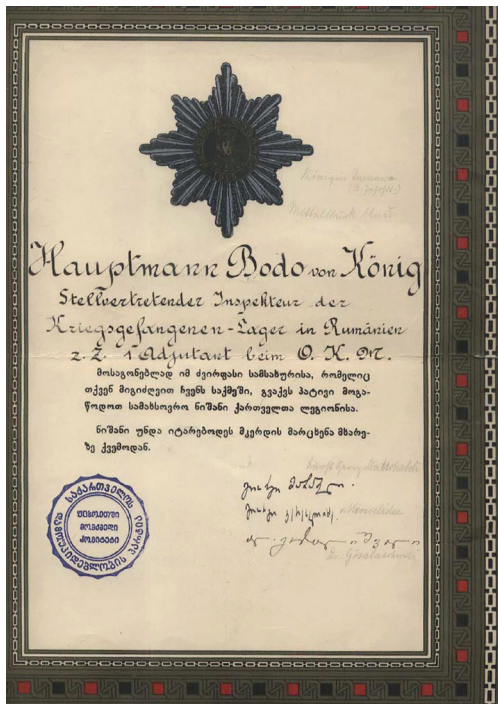 Hauptmann Bodo von König
Stellvertretender Inspekteur der
Kriegsgefangenen-Lager in Rumänien
z. Z. 1 Adjutant beim O. K. M.
მოსაგონებლად იმ ძვირფასი სამსახურისა, რომელიც
თქვენ მიგიძღვით ჩვენს საქმეში, გვაქვს პატივი მოგა-
წოდოთ სამახსოვრო ნიშანი ქართველთა ლეგიონისა.
ნიშანი უნდა იტარებოდეს მკერდის მარცხენა მხარე-
ზე ქვემოდან.
საქართველოს
დამოუკიდებლობის პარტია
უცხოეთში
მოქმედი
კომიტეტი